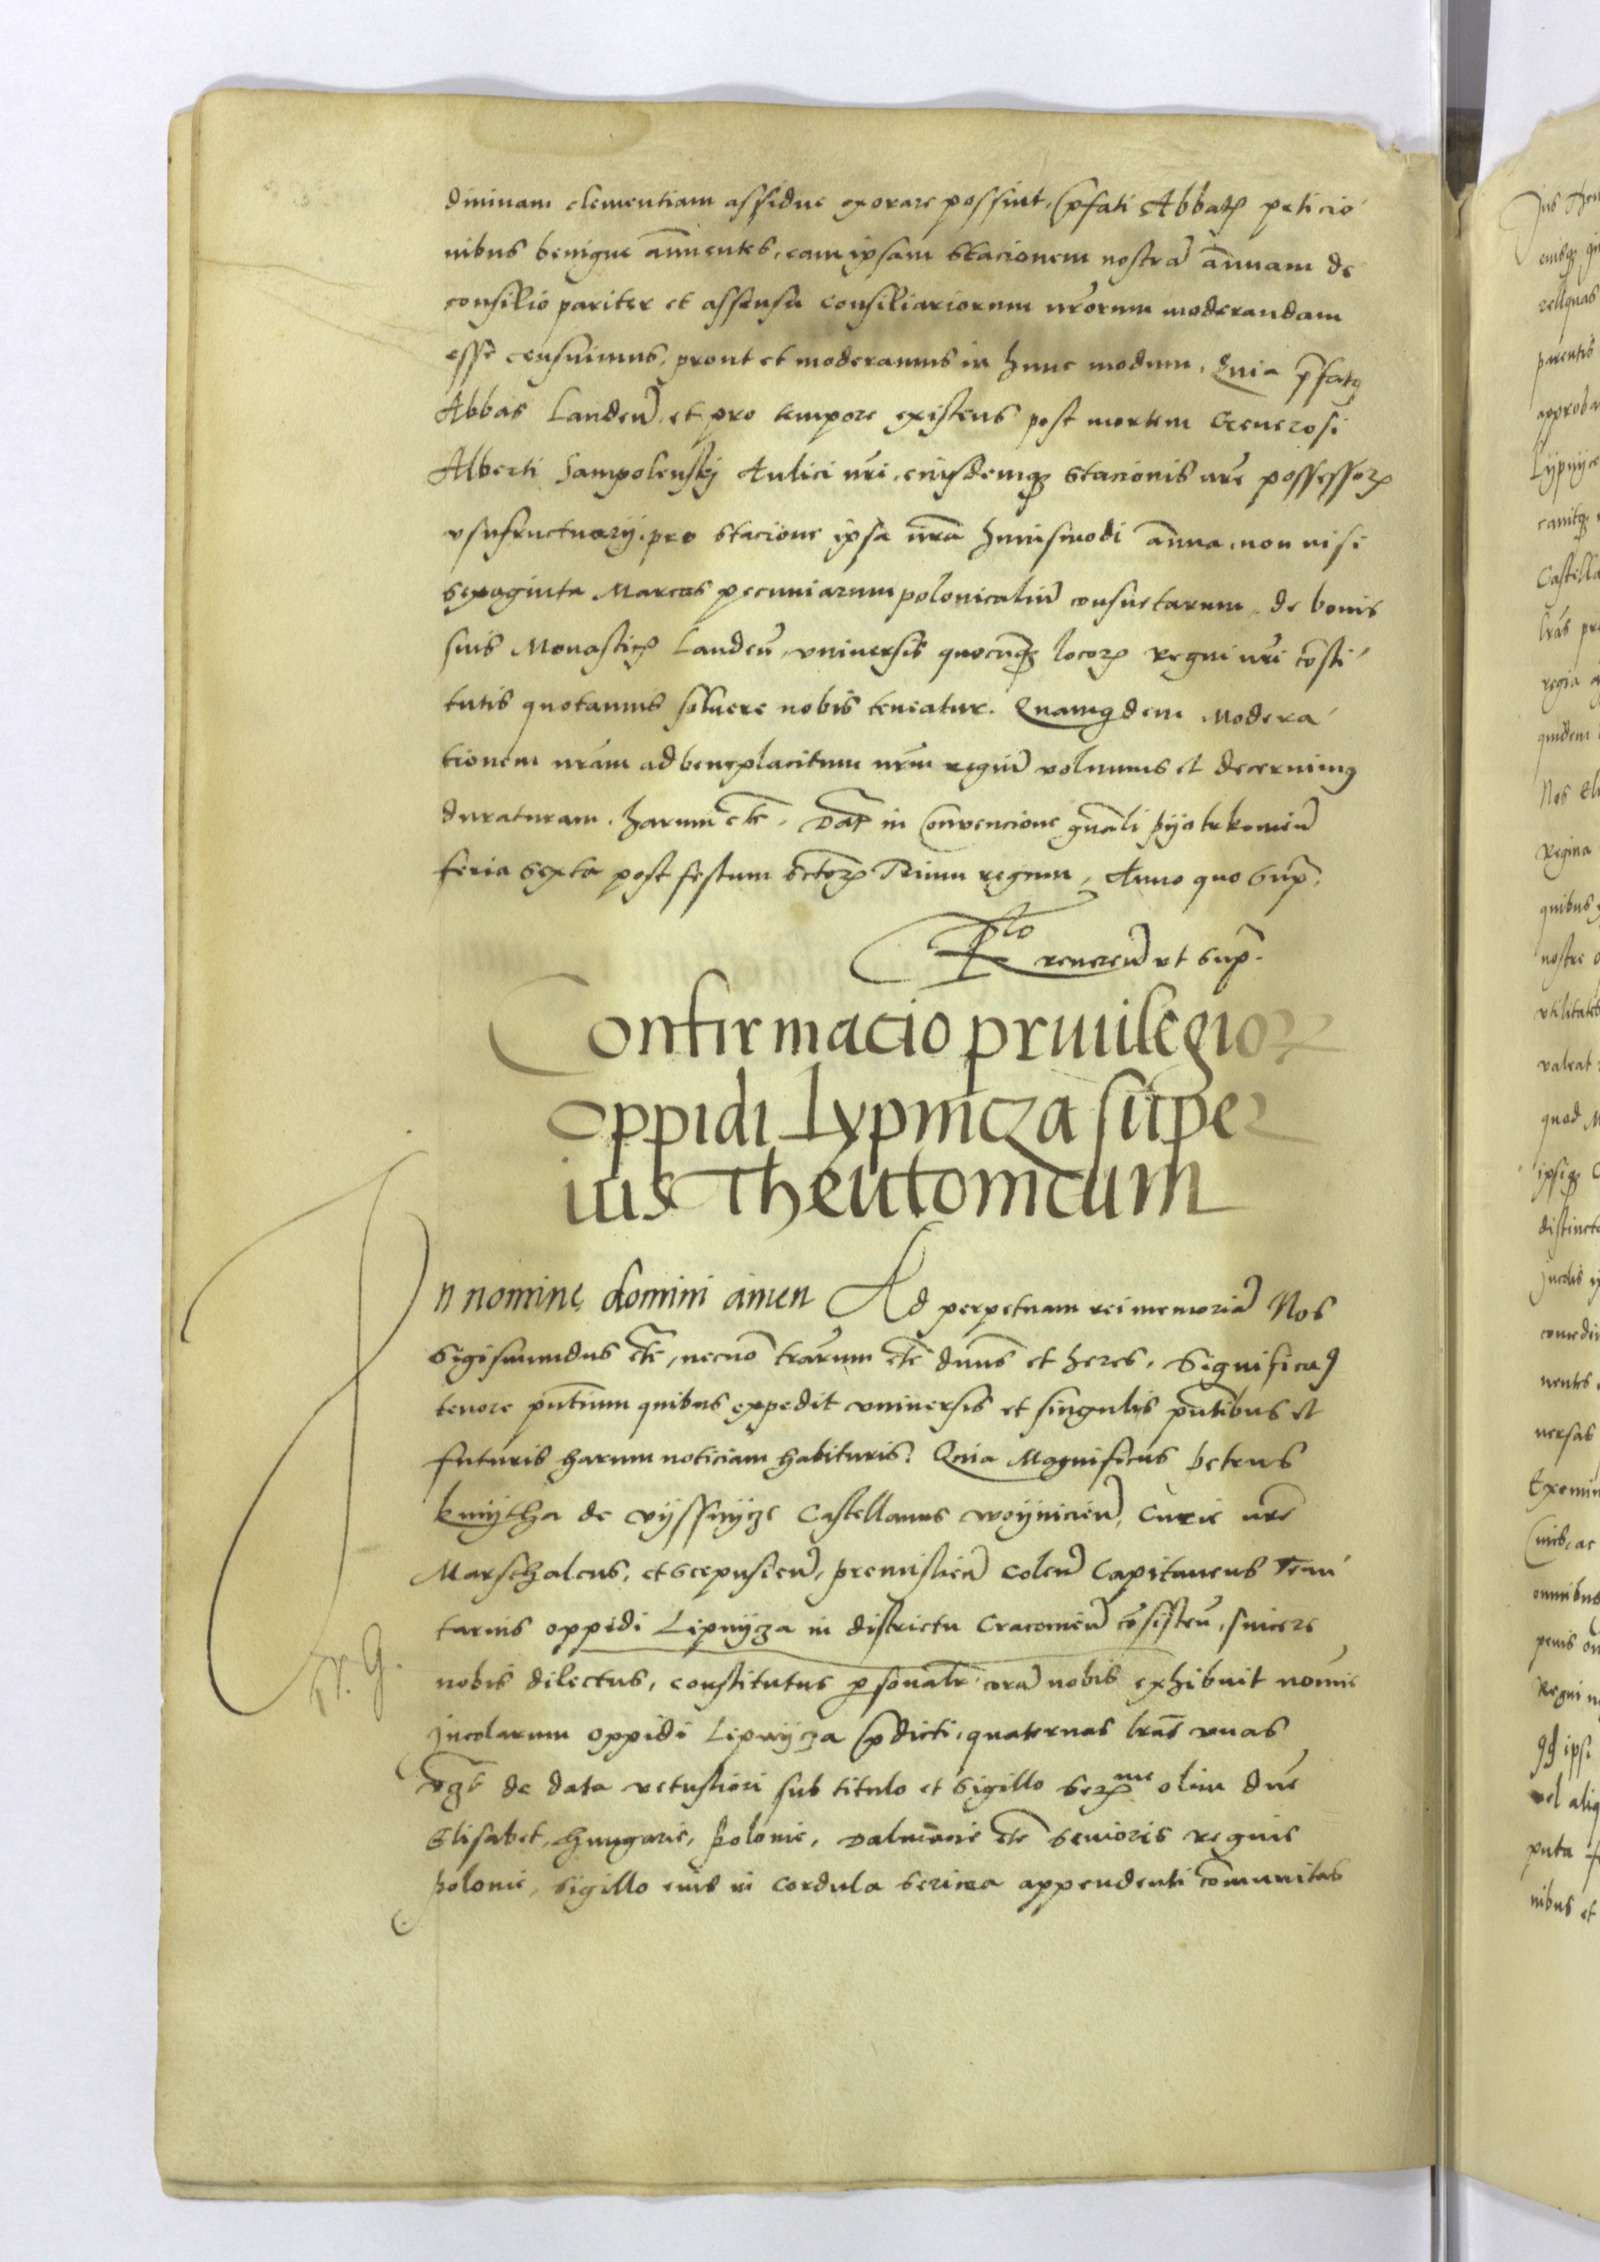 diuinam clementiam assidue exorare possint, p̄fati Abbatꝭ peticio
nibus benigne añuentes, eam ipsam stacionem nostrã añuam de
consilio pariter et assensu consiliariorum nr̃orum moderandam
esse censuimus, prout et moderamus in hunc modum, Quia p̄fatꝯ
Abbas Landeñ, et pro tempore existens post mortem Generosi
Alberti Sampolensky Aulici nr̃i, eiusdemqꝫ stacionis nr̃e possessoꝝ
vsufructuarij, pro stacione ipsa nr̃a huiusmodi añua, non nisi
sexaginta Marcas pecuniarum polonicaliũ consuetarum, de bonis
suis Monasterꝭ Landeñ, vniuersis quocũqꝫ locoꝝ Regni nr̃i cõsti
tutis quotannis soluere nobis teneatur. Quamquidem Modera
tionem nr̃am ad beneplacitum nr̃m regiũ volumus et decernimꝯ
duraturam. harum etc̃. Dat̃ in Conuencione gñali pijotrkowieñ
feria sexta post festum sctoꝝ Trium regum, Anno quo sup̃.
Rlo reuereñ vt sup̃.
Confirmacio priuilegioꝝ
oppidi Lypnicza super
ius Theutonicum
In nomine domini amen Ad perpetuam rei memoriã Nos
Sigismundus etc̃, necnõ trãrum etc̃ dñus et heres, Significaꝯ
tenore pñtium quibus expedit vniuersis et singulis pñtibus et
futuris harum noticiam habituris? Quia Magnificus petrus
kmytha de vyssnycze Castellanus woyniceñ, Curie nr̃e
Marschalcus, et scepusieñ, premislieñ Coleñ Capitaneus Tenu
tarius oppidi Lipnycza in districtu Cracouieñ cõsisteñ, sincere
nobis dilectus, constitutus ꝑsonalr̃ corã nobis exhibuit noĩe
Incolarum oppidi Lipnycza p̄dicti, quaternas lrãs vnas
vꝫ de data vetustiori sub titulo et sigillo serꝫme olim dñe
Elisabet, hungarie, polonie, Dalmacie etc̃ senioris regine
polonie, sigillo eius in cordula sericea appendenti cõmunitas